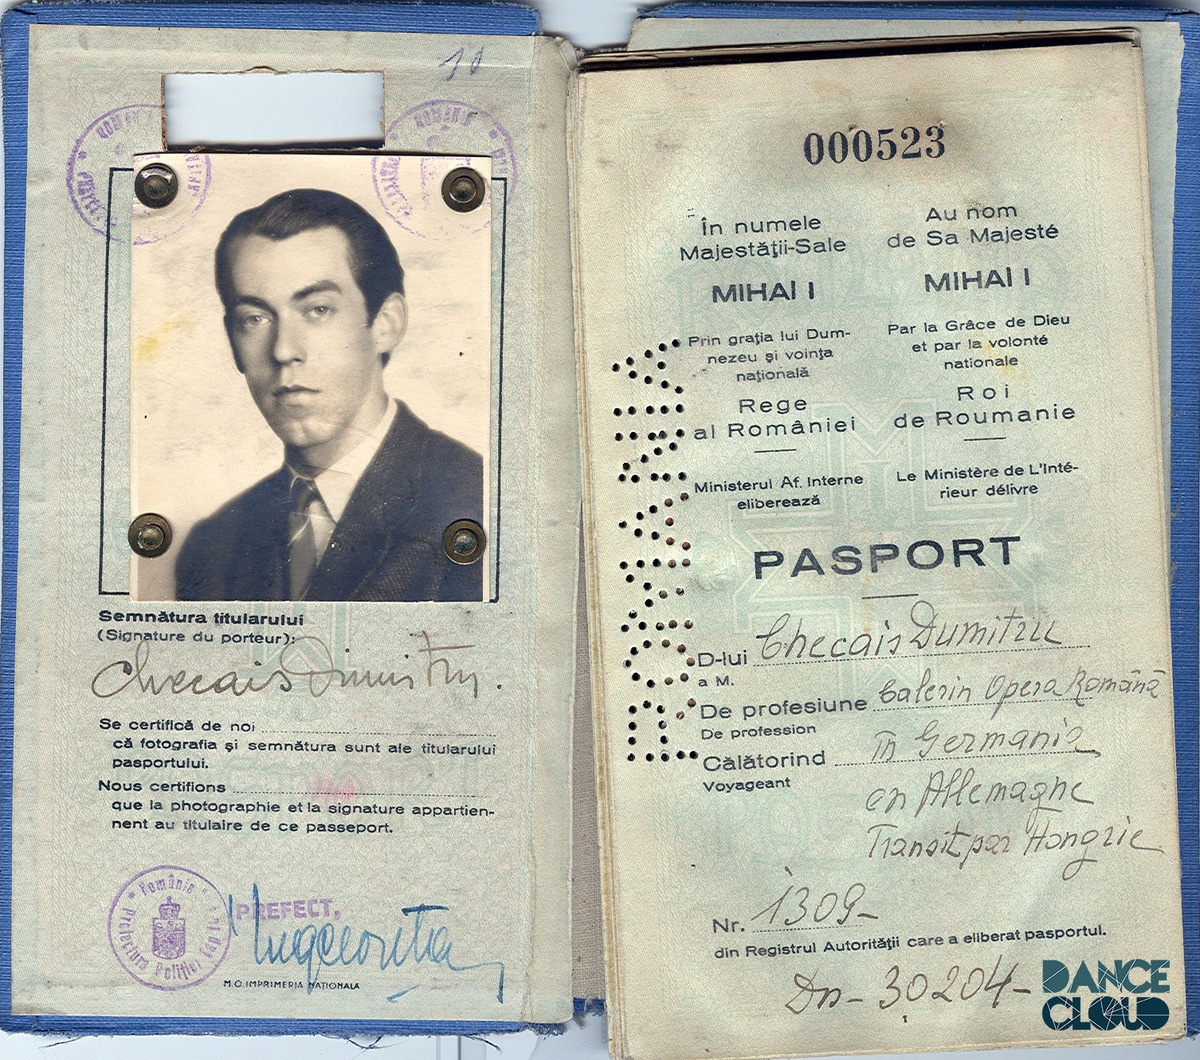 10
Semnătura titularului
(Signature du porteur):
Checais Dimitru.
Se certifică de noi
că fotografia și semnătura sunt ale titularului
pasportului.
Nous certifions
que la photographie et la signature appartien-
nent au titulaire de ce passeport.
România
Prefectura Poliției Capitalei
PREFECT,
M. O. IMPRIMERIA NAȚIONALA
000523
În numele
Majestății-Sale
MIHAI I
Prin grația lui Dum-
nezeu și voința
națională
Rege
al României
Ministerul Af. Interne
eliberează
Au nom
de Sa Majesté
MIHAI I
Par la Grâce de Dieu
et par la volonté
nationale
Roi
de Roumanie
Le Ministère de L'Inté-
rieur délivre
ROMANIA
PASPORT
D-lui Checais Dumitru
a M.
De profesiune Balerin Opera Română
De profession
Călătorind în Germania
Voyageant
en Allemagne
Transit par Hongrie
Nr. 1309-
din Registrul Autorității care a eliberat pasportul.
Dn-30204-
1
DANCE
CLOUD